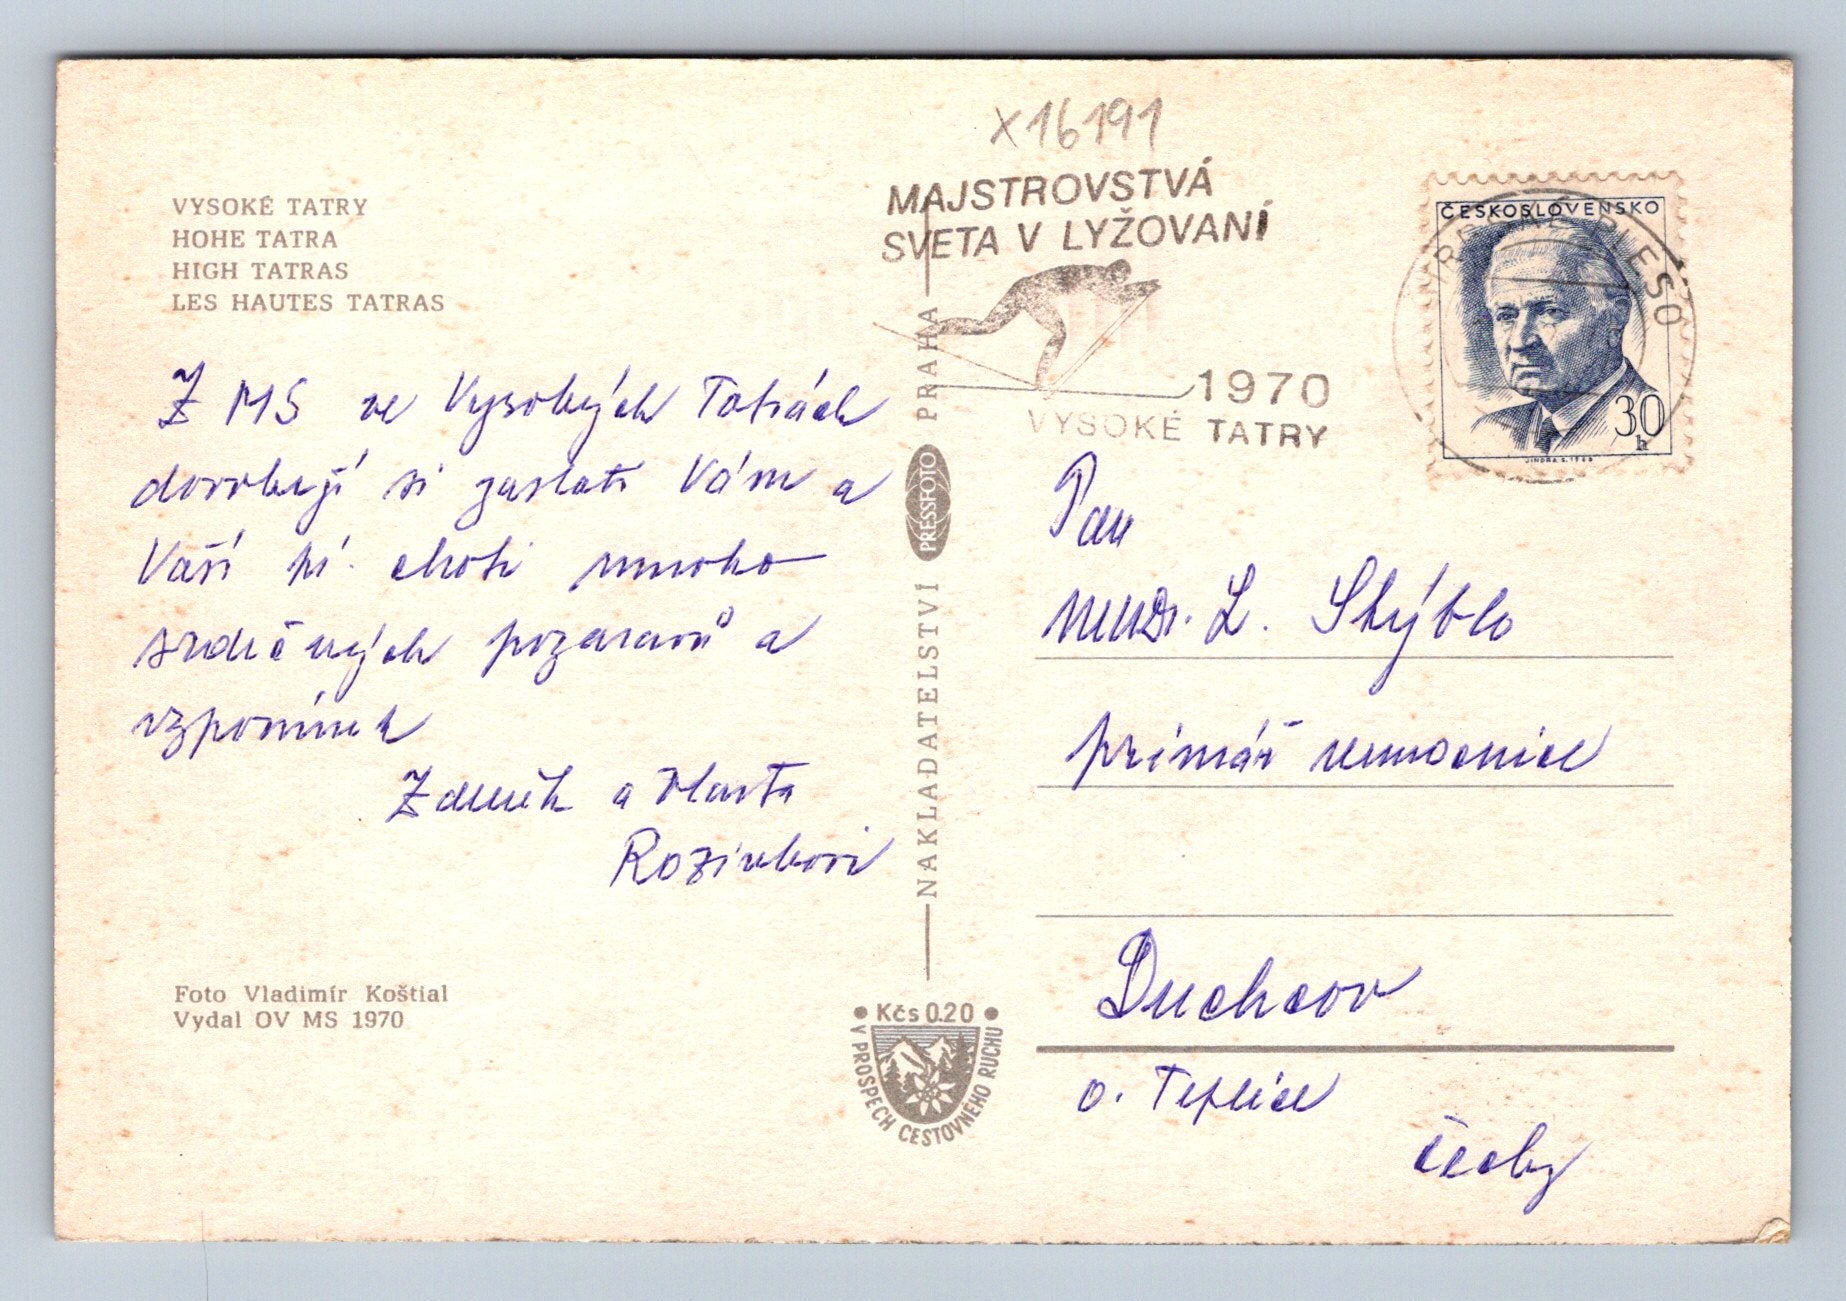 X16191
MAJSTROVSTVÁ
SVETA V LYŽOVANÍ
1970
VYSOKÉ TATRY
ČESKOSLOVENSKO
30
h
JINDRA S. 1968
PLESO
VYSOKÉ TATRY
HOHE TATRA
HIGH TATRAS
LES HAUTES TATRAS
Z MS ve Vysokých Tatrách
dovolují si zaslati Vám a
Vaší pí. choti mnoho
srdečných pozdravů a
vzpomínek
Zdeněk a Vlasta
Rozínkovi
Foto Vladimír Koštial
Vydal OV MS 1970
NAKLADATELSTVÍ PRESSFOTO PRAHA
• Kčs 0.20 •
V PROSPECH CESTOVNÉHO RUCHU
Pan
MUDr. L. Skýblo
primář nemocnice
Duchcov
o. Teplice
Čechy